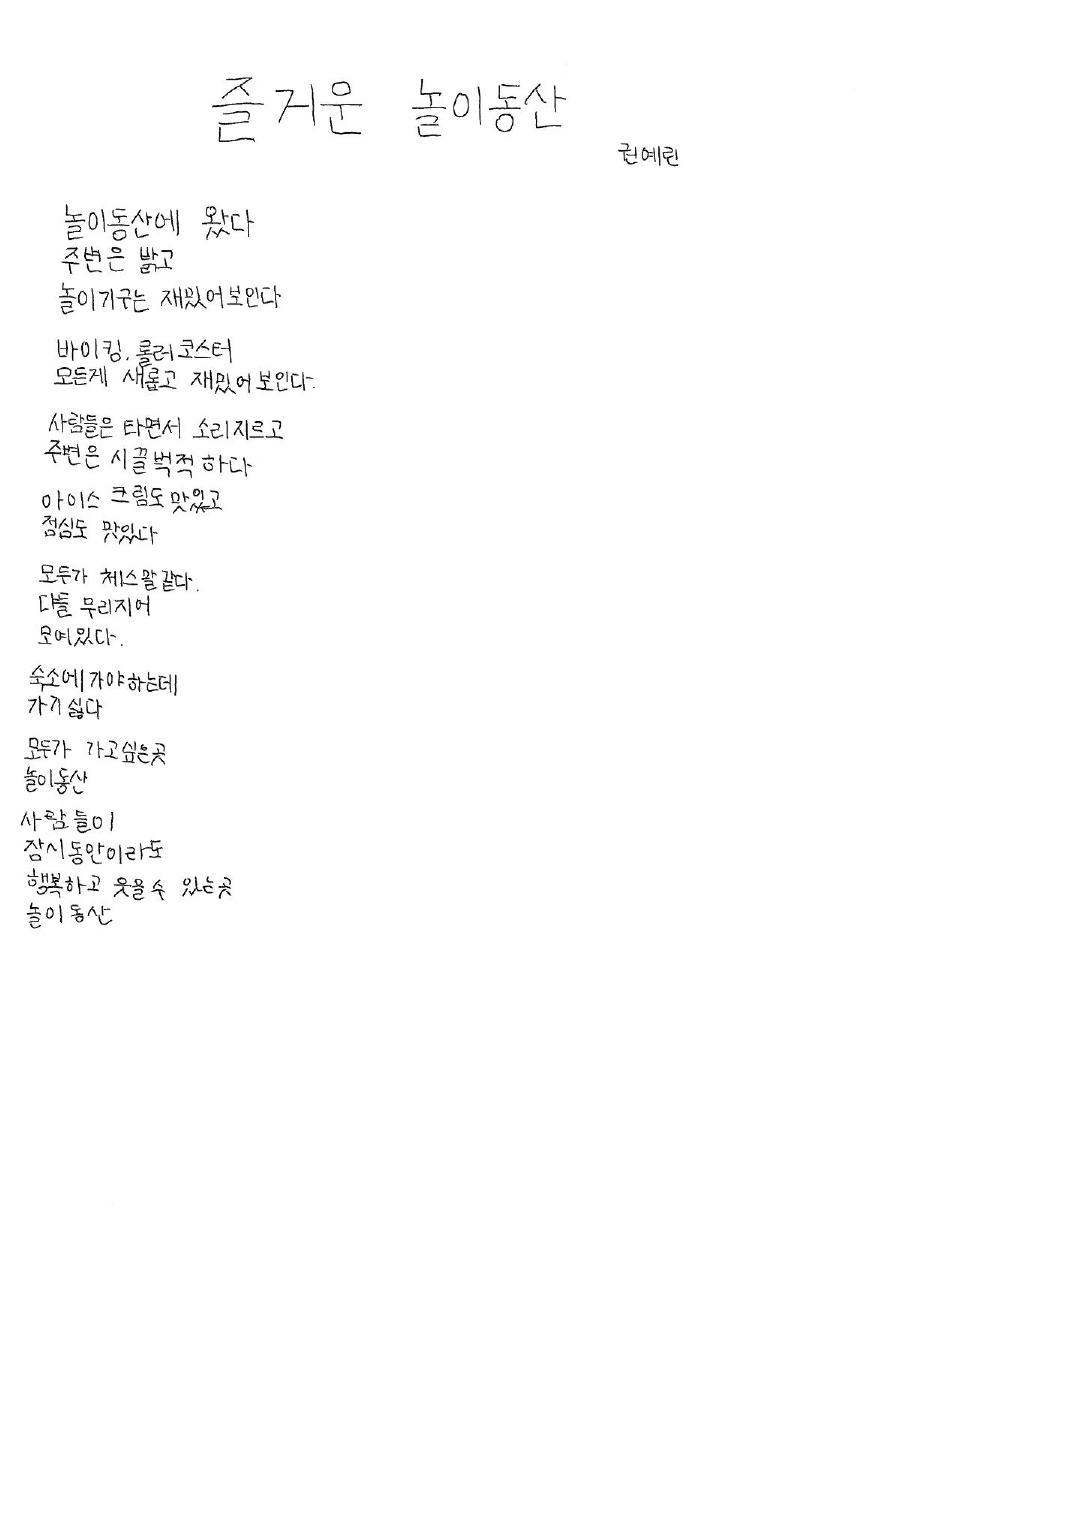 즐거운 놀이동산
권예린
놀이동산에 왔다
주변은 밝고
놀이기구는 재밌어보인다
바이킹, 롤러코스터
모든게 새롭고 재밌어보인다.
사람들은 타면서 소리지르고
주변은 시끌벅적하다
아이스크림도 맛있고
점심도 맛있다
모두가 체스말같다.
다들 무리지어
모여있다.
숙소에가야하는데
가기싫다
모두가 가고싶은곳
놀이동산
사람들이
잠시동안이라도
행복하고 웃을수 있는곳
놀이동산